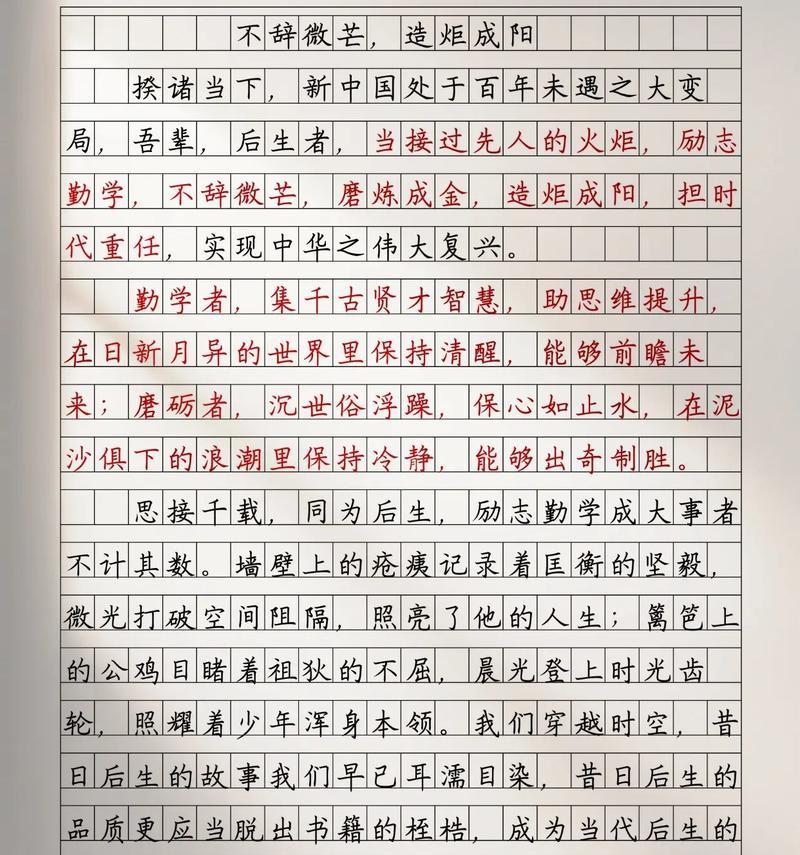 不辞微芒，造炬成阳
揆诸当下，新中国处于百年未遇之大变
局，吾辈，后生者，当接过先人的火炬，励志
勤学，不辞微芒，磨炼成金，造炬成阳，担时
代重任，实现中华之伟大复兴。
勤学者，集千古贤才智慧，助思维提升，
在日新月异的世界里保持清醒，能够前瞻未
来；磨砺者，沉世俗浮躁，保心如止水，在泥
沙俱下的浪潮里保持冷静，能够出奇制胜。
思接千载，同为后生，励志勤学成大事者
不计其数。墙壁上的疮痍记录着匡衡的坚毅，
微光打破空间阻隔，照亮了他的人生；篱笆上
的公鸡目睹着祖狄的不屈，晨光登上时光齿
轮，照耀着少年浑身本领。我们穿越时空，昔
日后生的故事我们早已耳濡目染，昔日后生的
品质更应当脱出书籍的桎梏，成为当代后生的